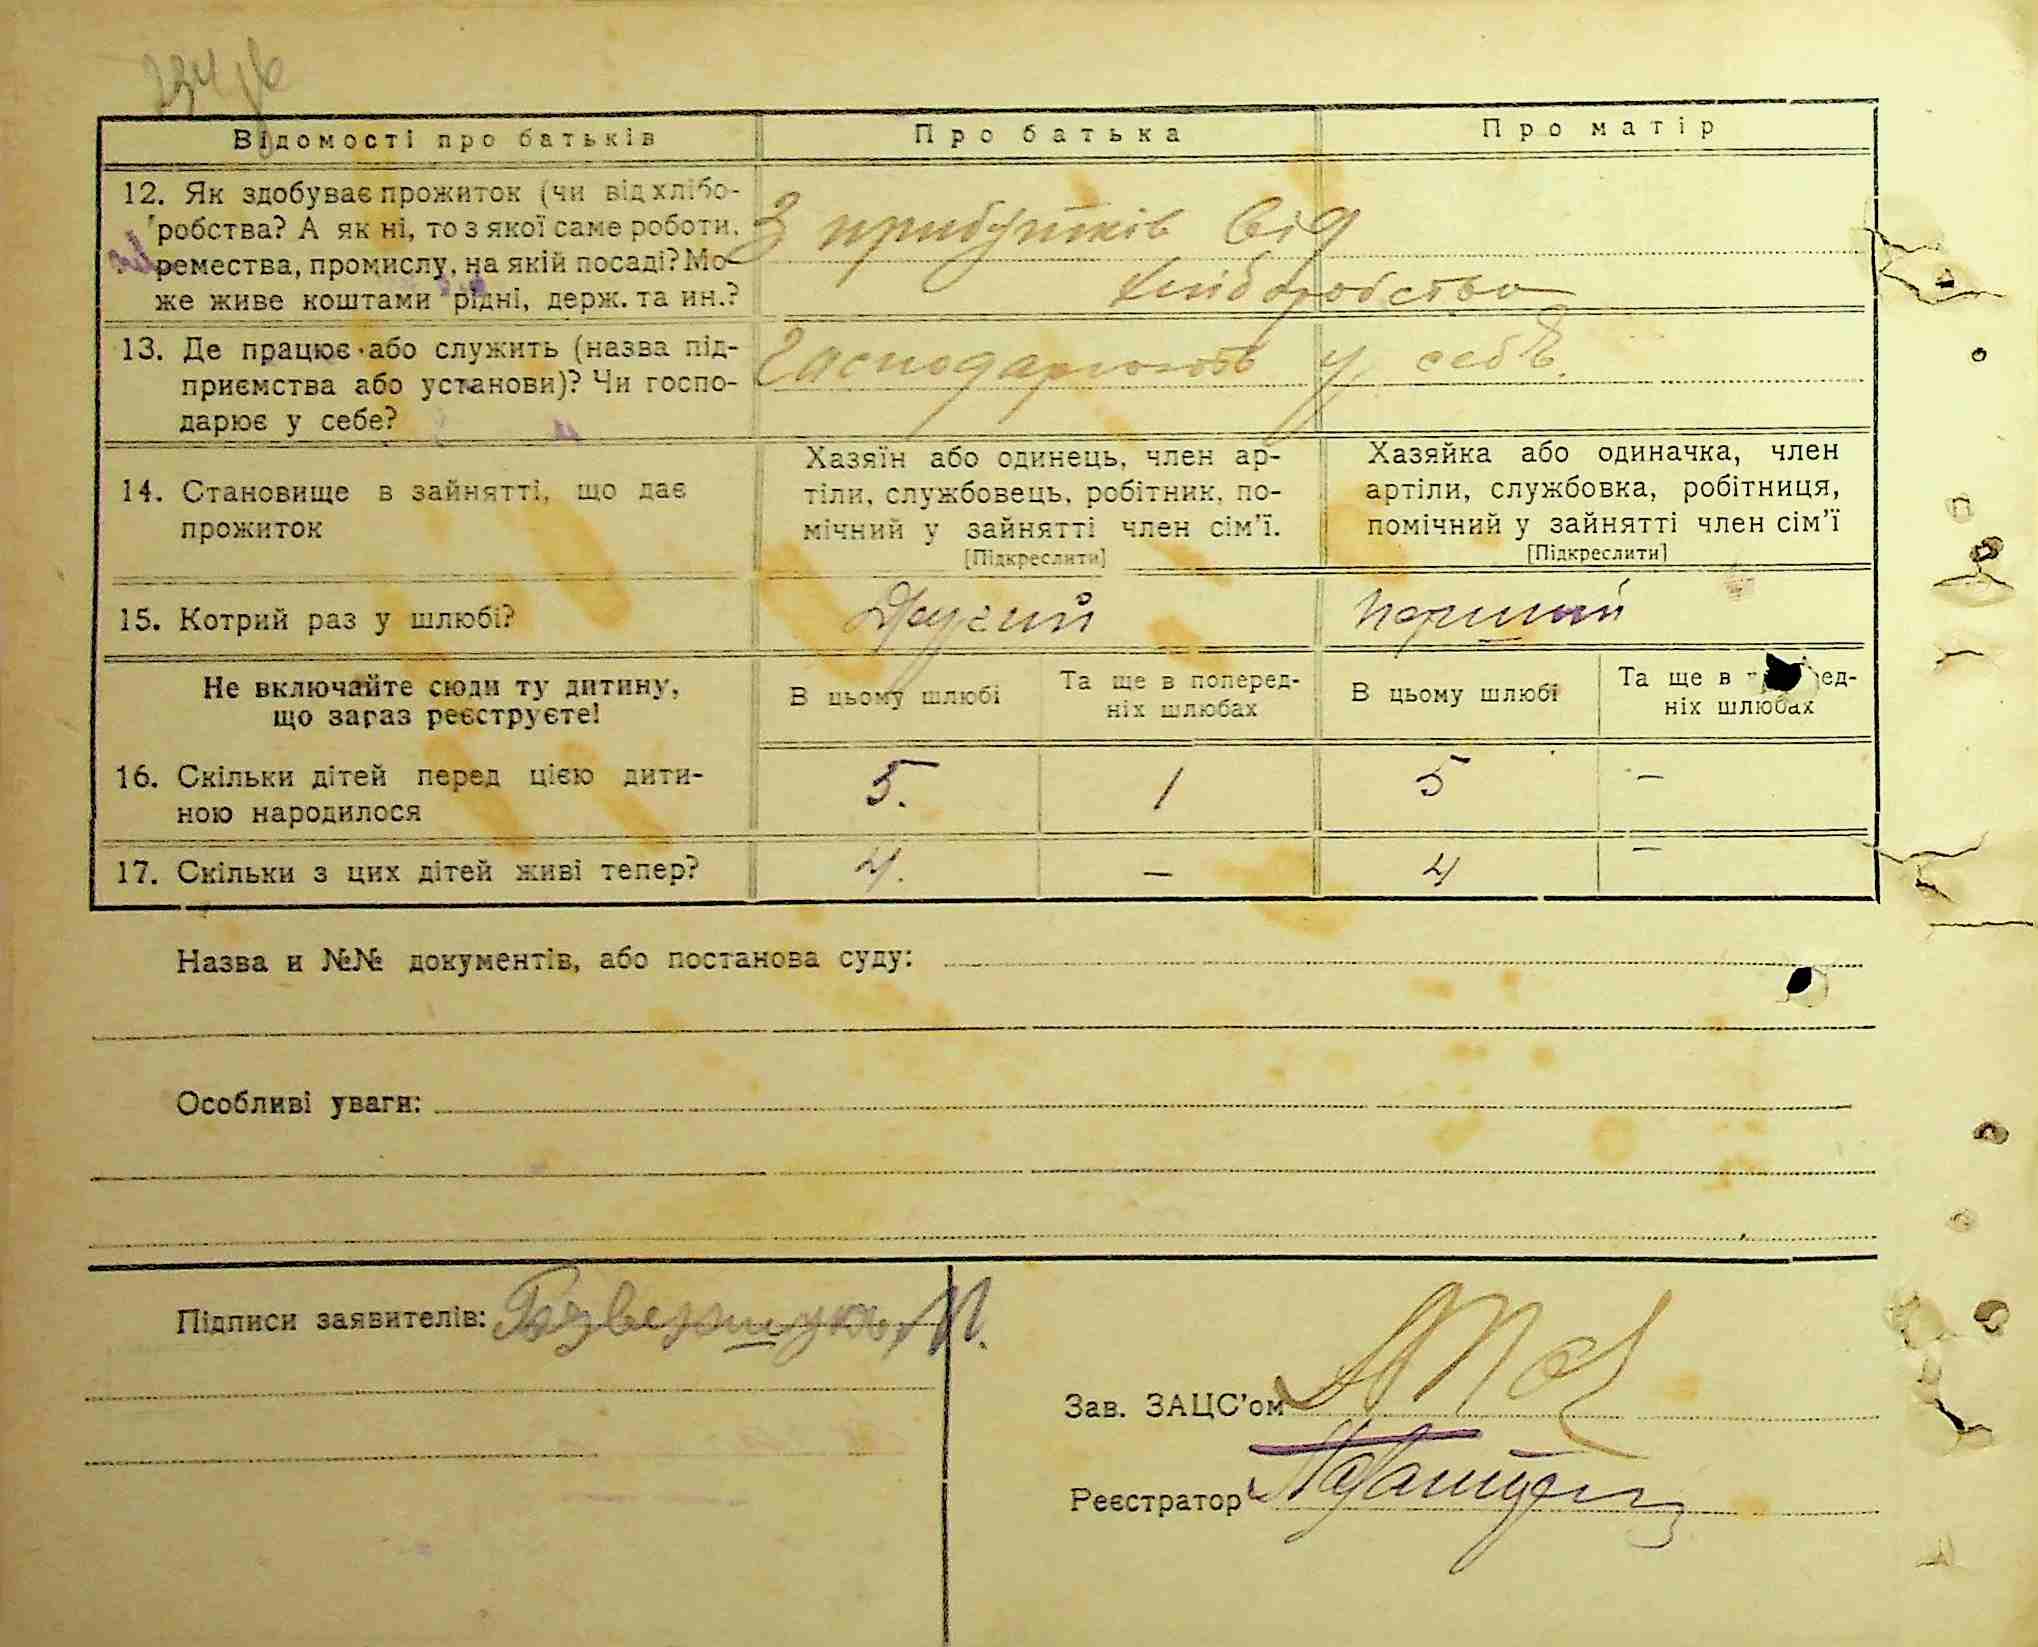 234
Відомості про батьків Про батька Про матір
12. Як здобуває прожиток (чи від хлібо-
робства? А як ні, то з якої саме роботи,
ремества, промислу, на якій посаді? Мо-
же живе коштами рідні, держ. та ин.?
З прибутків від
хліборобства
13. Де працює або служить (назва під-
приємства або установи)? Чи госпо-
дарює у себе?
Господарюють у себе.
14. Становище в зайнятті, що дає
прожиток
Хазяїн або одинець, член ар-
тіли, службовець, робітник, по-
мічний у зайнятті член сім'ї.
[Підкреслити]
Хазяйка або одиначка, член
артіли, службовка, робітниця,
помічний у зайнятті член сім'ї
[Підкреслити]
15. Котрий раз у шлюбі? Другий Перший
Не включайте сюди ту дитину,
що зараз реєструєте!
В цьому шлюбі
Та ще в поперед-
ніх шлюбах
В цьому шлюбі
Та ще в ед-
ніх шлюбах
16. Скільки дітей перед цією дити-
ною народилося
5. 1 5 –
17. Скільки з цих дітей живі тепер? 4. – 4 –
Назва и №№ документів, або постанова суду:
Особливі уваги:
Підписи заявителів:
Зав. ЗАЦС'ом
Реєстратор